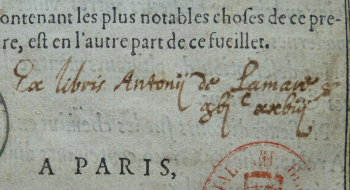 ontenant les plus notables choſes de ce pre-
re, est en l'autre part de ce fueillet.
Ex libris Antonij de Lamare
A PARIS,